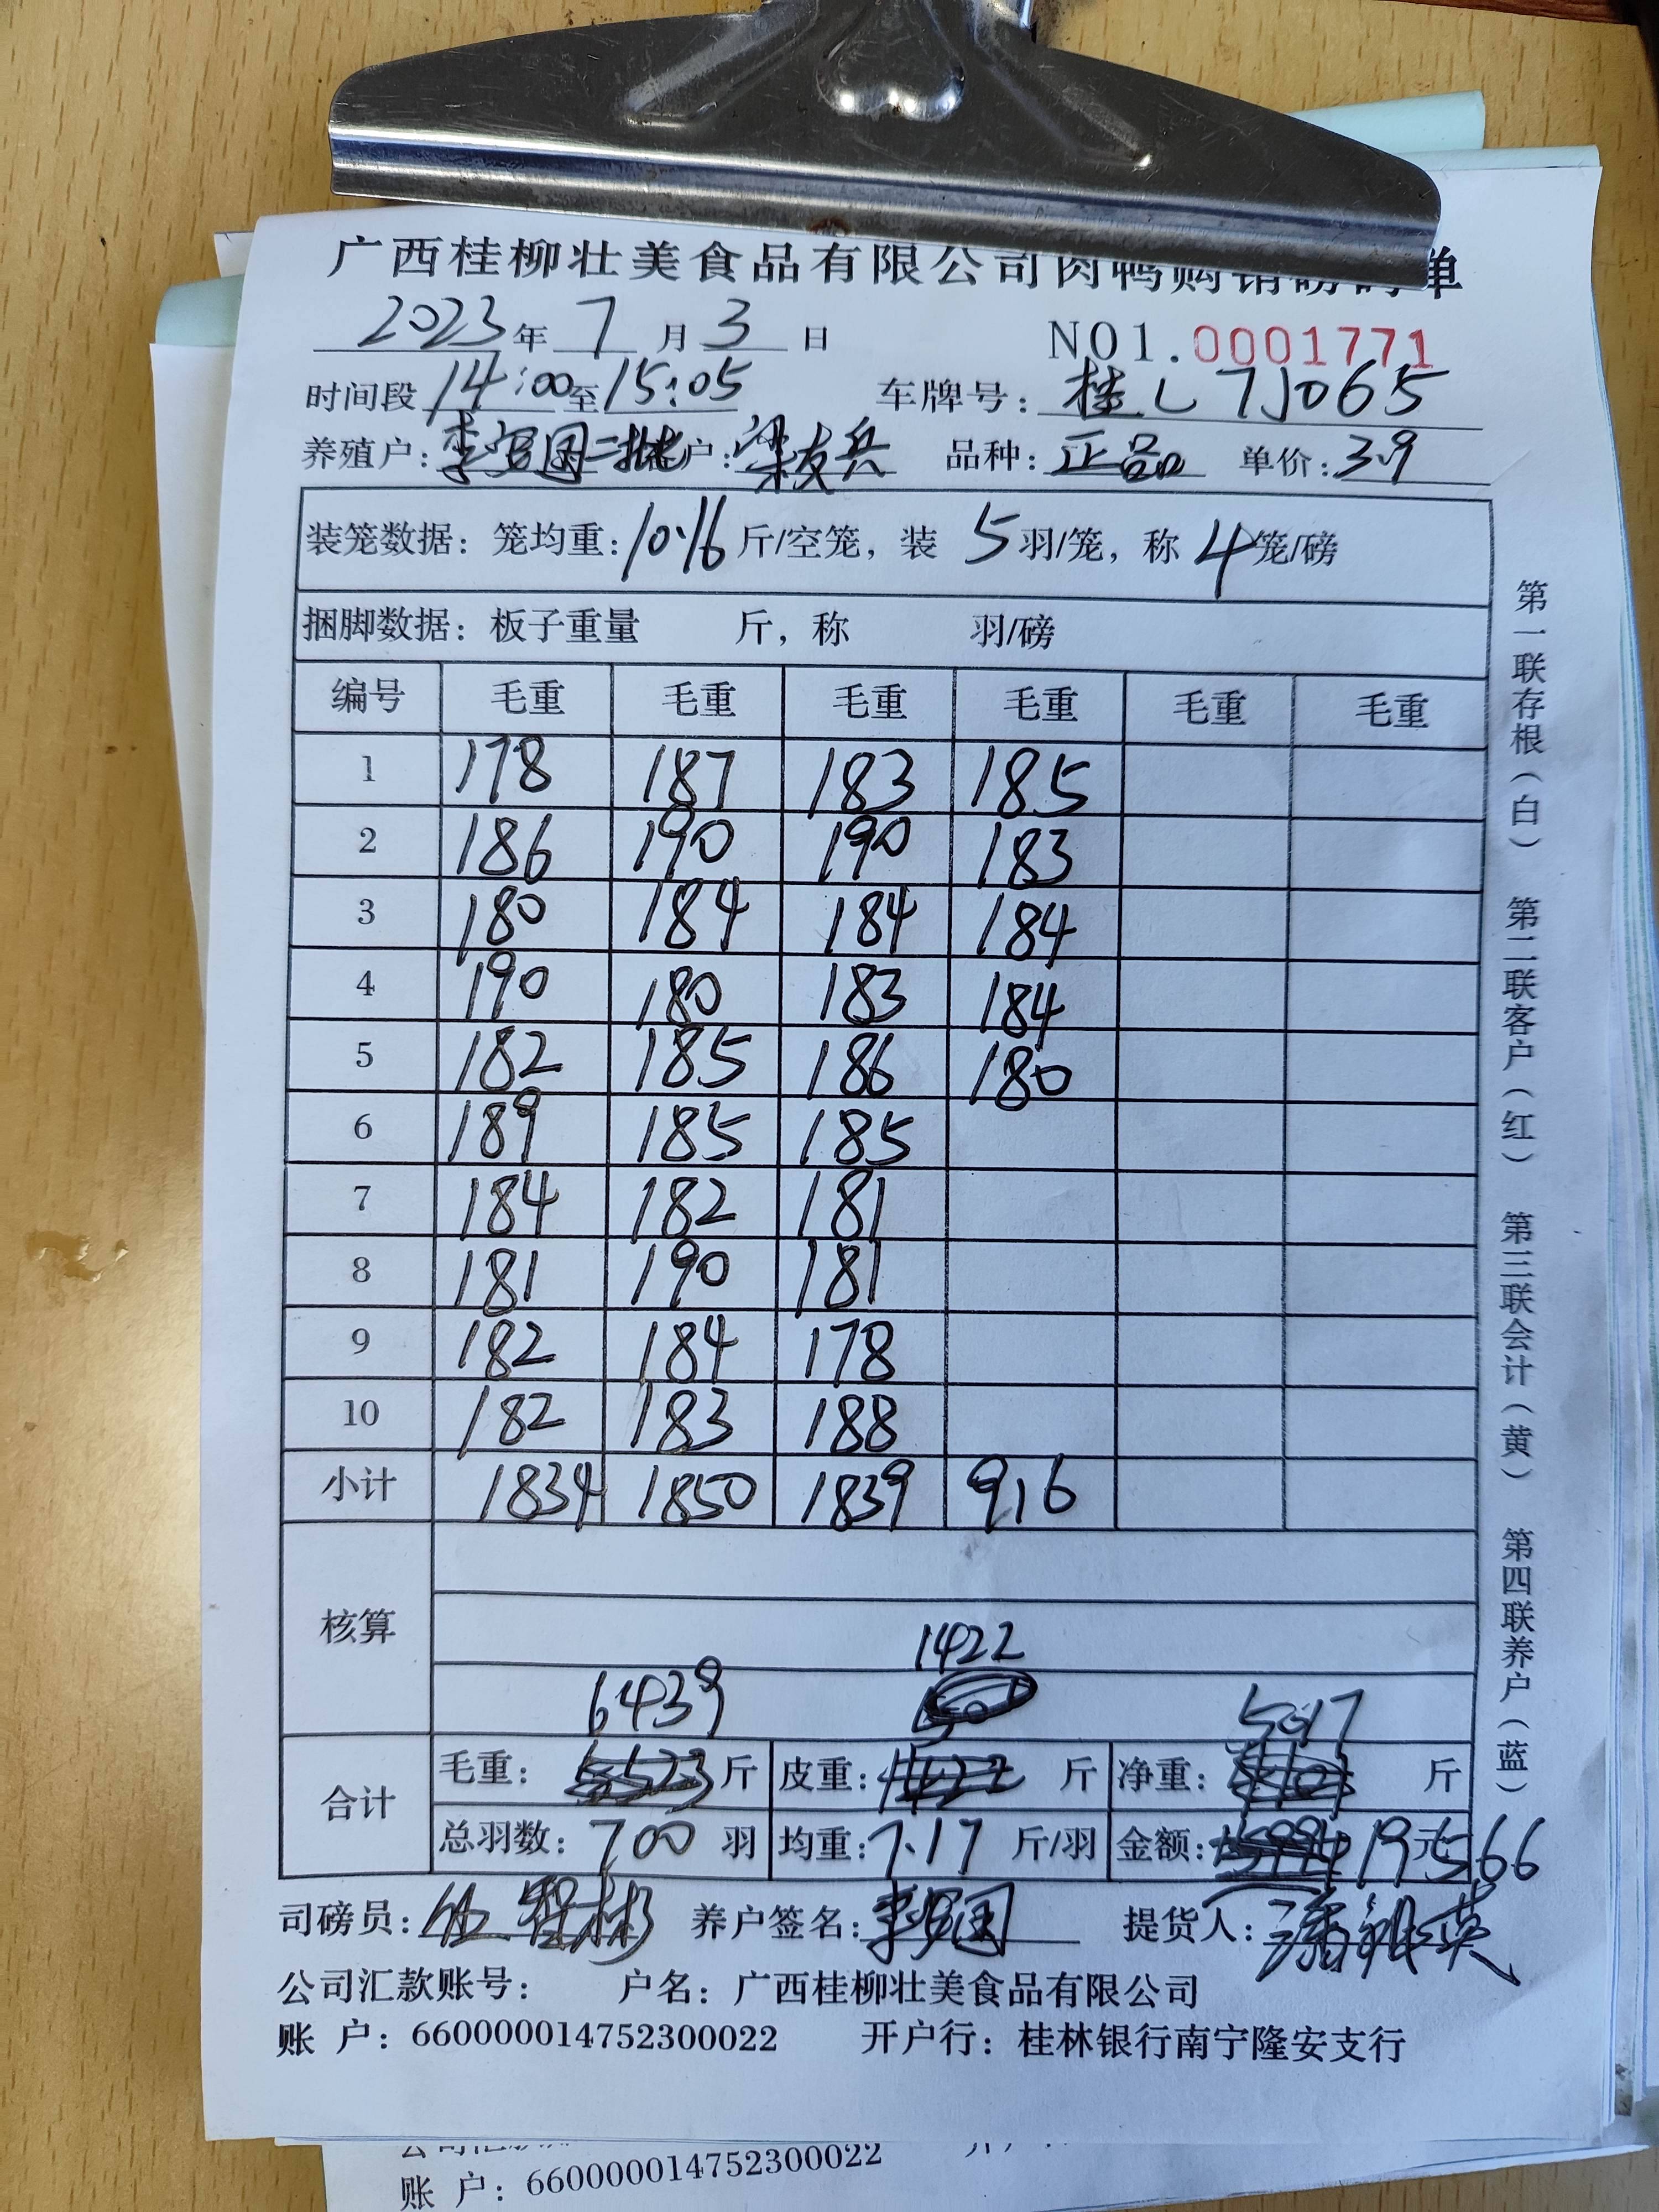 广西桂柳壮美食品有限公司肉鸭购销磅码单
2023年 7 月 3 日 NO1.0001771
时间段 14:00至15:05 车牌号: 桂L 7J065
养殖户: 李国二批 户: 梁友兵 品种: 正品 单价: 3.9
装笼数据: 笼均重: 10.16 斤/空笼, 装 5 羽/笼, 称 4 笼/磅
捆脚数据: 板子重量 斤, 称 羽/磅
编号 毛重 毛重 毛重 毛重 毛重 毛重
1 178 187 183 185
2 186 190 190 183
3 180 184 184 184
4 190 180 183 184
5 182 185 186 180
6 189 185 185
7 184 182 181
8 181 190 181
9 182 184 178
10 182 183 188
小计 1834 1850 1839 916
核算
1422
6439 5017
合计 毛重: 6523 斤 皮重: 1422 斤 净重: 斤
总羽数: 700 羽 均重: 7.17 斤/羽 金额: 19566 元
司磅员: 养户签名: 李国 提货人: 英
公司汇款账号: 户名: 广西桂柳壮美食品有限公司
账 户: 660000014752300022 开户行: 桂林银行南宁隆安支行
第一联存根(白) 第二联客户(红) 第三联会计(黄) 第四联养户(蓝)
账 户: 660000014752300022